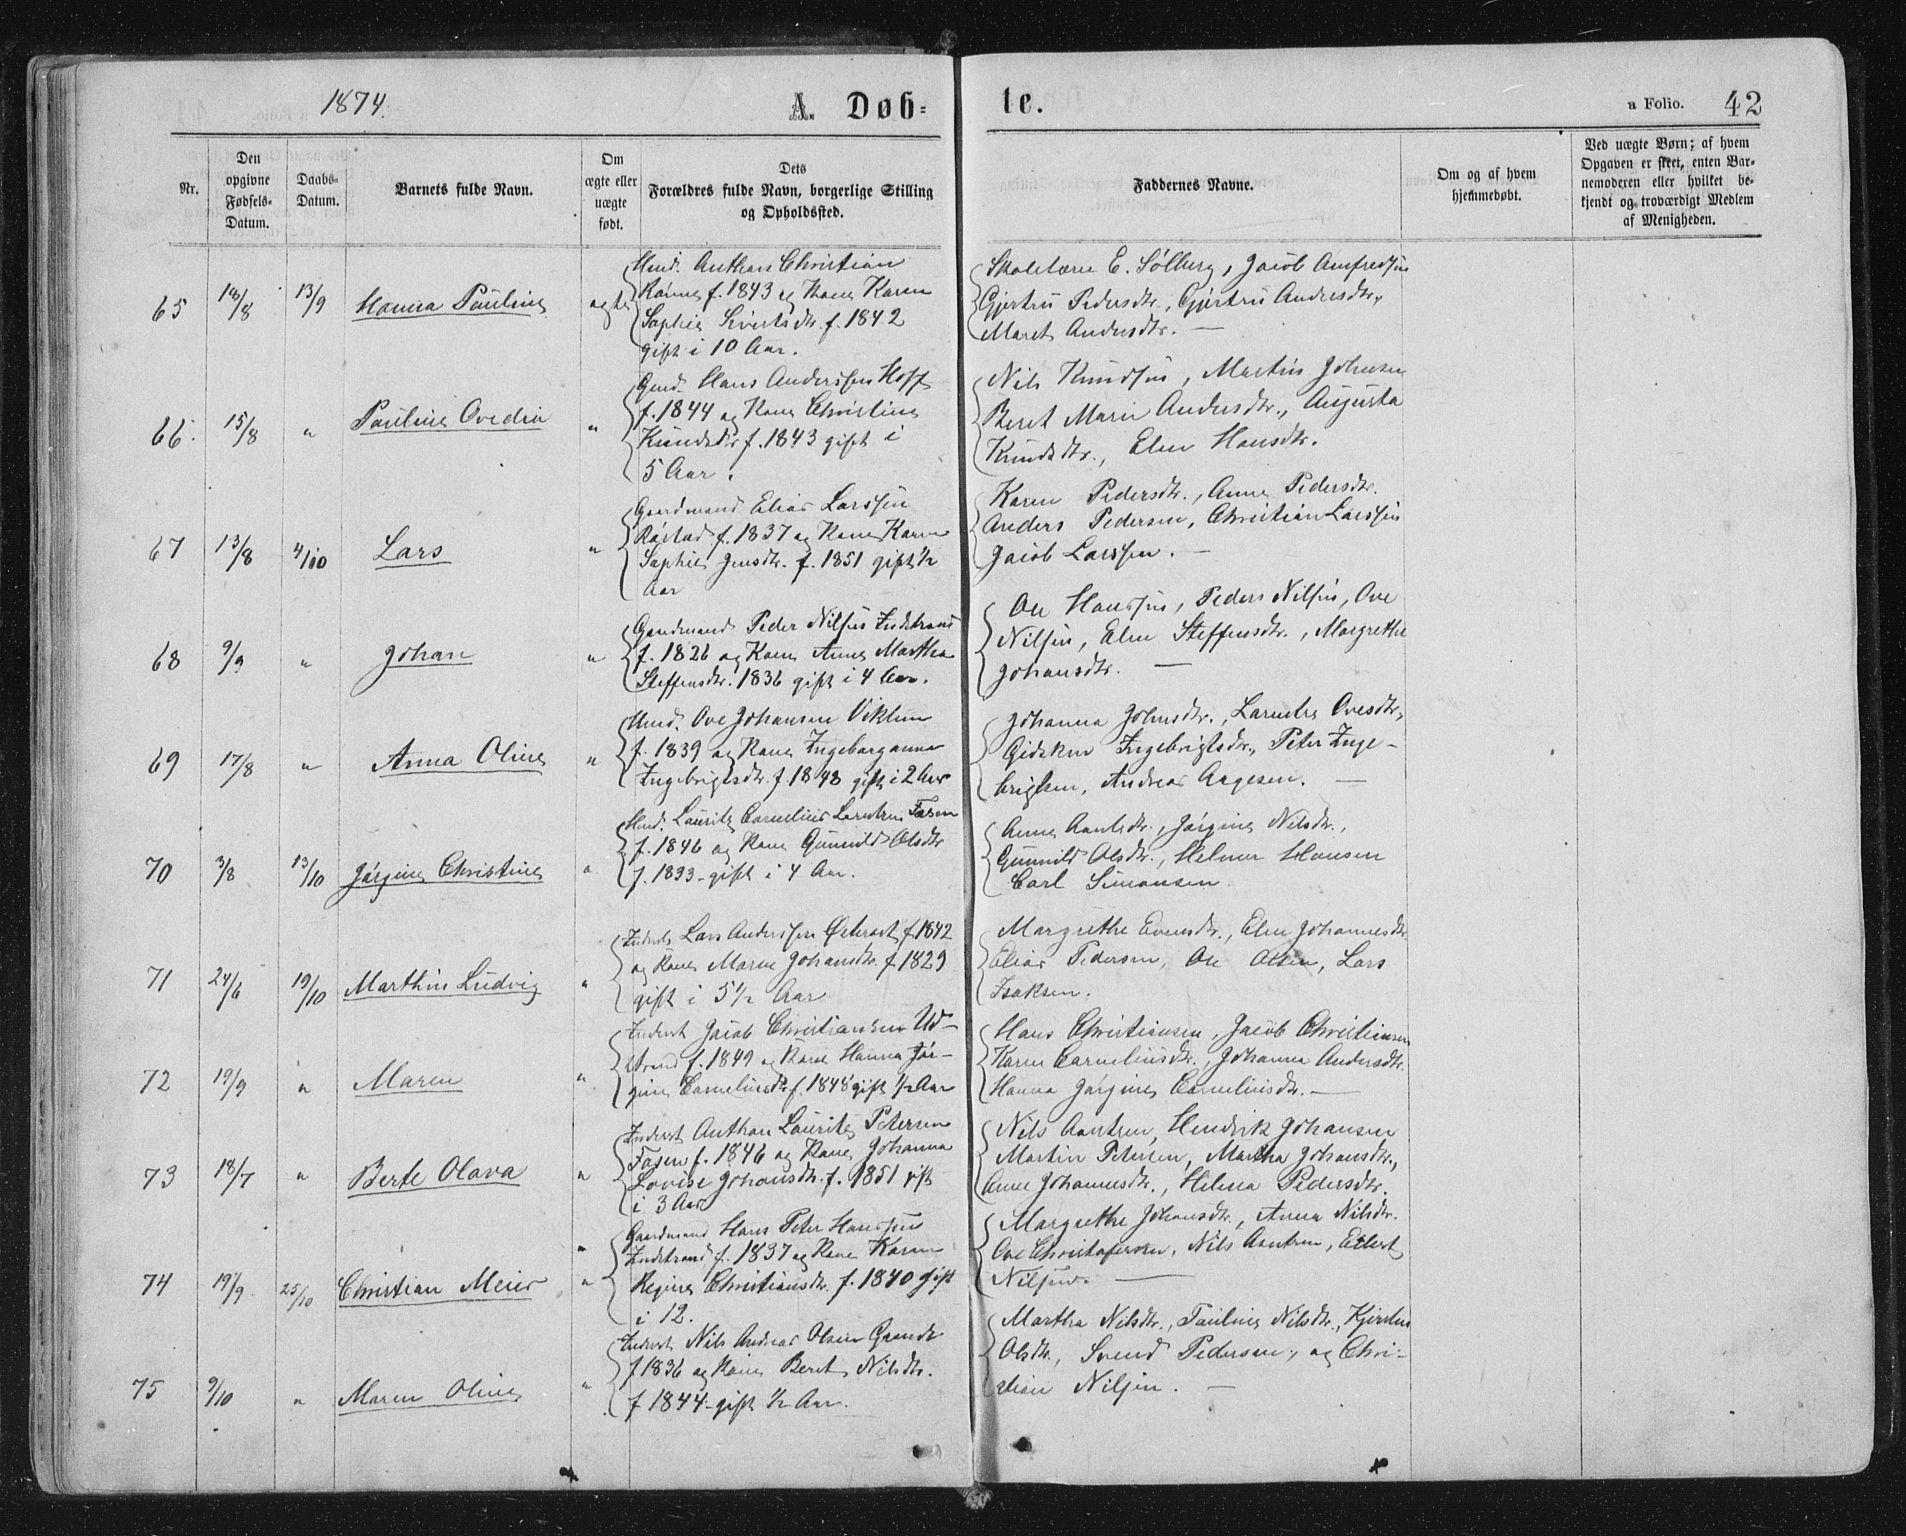 1874.
A. Døb=
te.
a Folio. 42
Nr.
Den opgivne Fødsels-Datum.
Daabs-Datum.
Barnets fulde Navn.
Om ægte eller uægte født.
Dets Forældres fulde Navn, borgerlige Stilling og Opholdssted.
Faddernes Navne.
Om og af hvem hjemmedøbt.
Ved uægte Børn; af hvem Opgaven er skeet, enten Bar-nemoderen eller hvilket be-kjendt og troværdigt Medlem af Menigheden.
65 18/8 13/9 Hanna Pauline ægte
Hmd. Anthon Christian
f. 1843 og Kone Karen
Sophie Sivertsdtr. f. 1842
gift i 10 Aar.
Skolelærer E. Solberg, Jacob Amfredsen
Gjertru Pedersdtr., Gjertru Andersdtr.,
Maret Andersdtr. —
66. 15/8 " Pauline Ovedia "
Gmd. Hans Anderssen Hoff
f. 1844 og Kone Christine
Knudsdtr f. 1843 gift i
5 Aar.
Nils Knudsen, Martin Johnsen
Beret Marie Andersdtr., Augusta
Knudsdtr., Elen Hansdtr.
67 13/8 4/10 Lars "
Gaardmand Elias Larssen
Røstad f. 1837 og Kone Karen
Sophie Jensdtr. f. 1851 gift 1/2
Aar
Karen Pedersdtr., Anne Pedersdtr.
Anders Pedersen, Christian Larssen
Jacob Larssen. —
68 9/9 " Johan "
Gaardmand Peder Nilsen Indstrand
f. 1826 og Kone Anne Martha
Steffensdtr. 1836 gift i 4 Aar.
Ole Hanssen, Peder Nilsen, Ove
Nilsen, Elen Steffensdtr., Margrethe
Johansdtr. —
69 17/8 " Anna Oline "
Hmd. Ove Johansen Viktun
f. 1839 og Kone Ingeborganna
Ingebrigtsdtr. f. 1848 gift i 2 Aar
Johanna Johnsdtr., Larentse Ovesdtr.,
Gidsken Ingebrigtsdtr., Peter Inge-
brigtsen, Andreas Aagesen. —
70 3/8 13/10 Jørgine Christine "
Hmd. Lauritz Cornelius Larntsen Fosen
f. 1846 og Kone Gunnild Olsdtr
f. 1833 - gift i 4 Aar.
Anne Aantsdtr., Jørgine Nilsdtr.,
Gunnild Olsdtr., Helmer Hansen
Carl Simonsen
71 24/6 19/10 Marthin Ludvig "
Inderst Lars Anderssen Østeraat f 1842
og Kone Maren Johansdtr. f. 1829
gift i 5 1/2 Aar
Margrethe Evensdtr., Elen Johannesdtr.
Elias Pedersen, Ole Olsen, Lars
Isaksen.
72 19/9 " Maren "
Inderst Jacob Christiansen Ud-
strand f. 1849 og Kone Hanna Jør-
gine Corneliusdtr f. 1848 gift 1/2 Aar
Hans Christiansen, Jacob Christiansen
Karen Corneliusdtr., Johanna Andersdtr.
Hanna Jørgine Corneliusdtr. —
73 18/7 " Berte Olava "
Inderst Anthon Lauritz Petersen
Fosen f. 1846 og Kone Johanna
Lovise Johansdtr. f. 1851 gift
i 3 Aar
Nils Aantsen, Hendrik Johansen
Martin Petersen, Martha Johansdtr.,
Anne Johannesdtr., Helena Pedersdtr.
74 19/9 25/10 Christian Meier "
Gaardmand Hans Peter Hanssen
Indstrand f. 1837 og Kone Karen
Regine Christiansdtr. f. 1840 gift
i 12.
Margrethe Johansdtr, Anna Nilsdtr.
Ove Christofersen, Nils Aantsen, Eilert
Nilsen. —
75 9/10 " Maren Oline "
Inderst Nils Andreas Olsen Grande
f 1836 og Kone Beret Nilsdtr.
f 1844 - gift 1/2 Aar.
Martha Nilsdtr., Pauline Nilsdtr., Kjersten
Olsdtr., Svend Pedersen, og Chri-
stian Nilsen. —